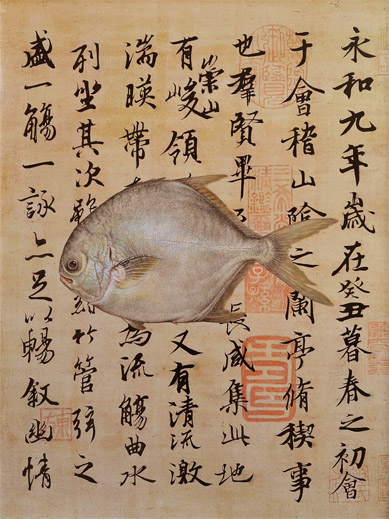 永和九年歲在癸丑暮春之初會
于會稽山陰之蘭亭脩稧事
也羣賢畢 長咸集此地
有崇山峻領 又有清流激
湍暎帶 為流觴曲水
列坐其次雖 竹管弦之
盛一觴一詠亦足以暢敘幽情